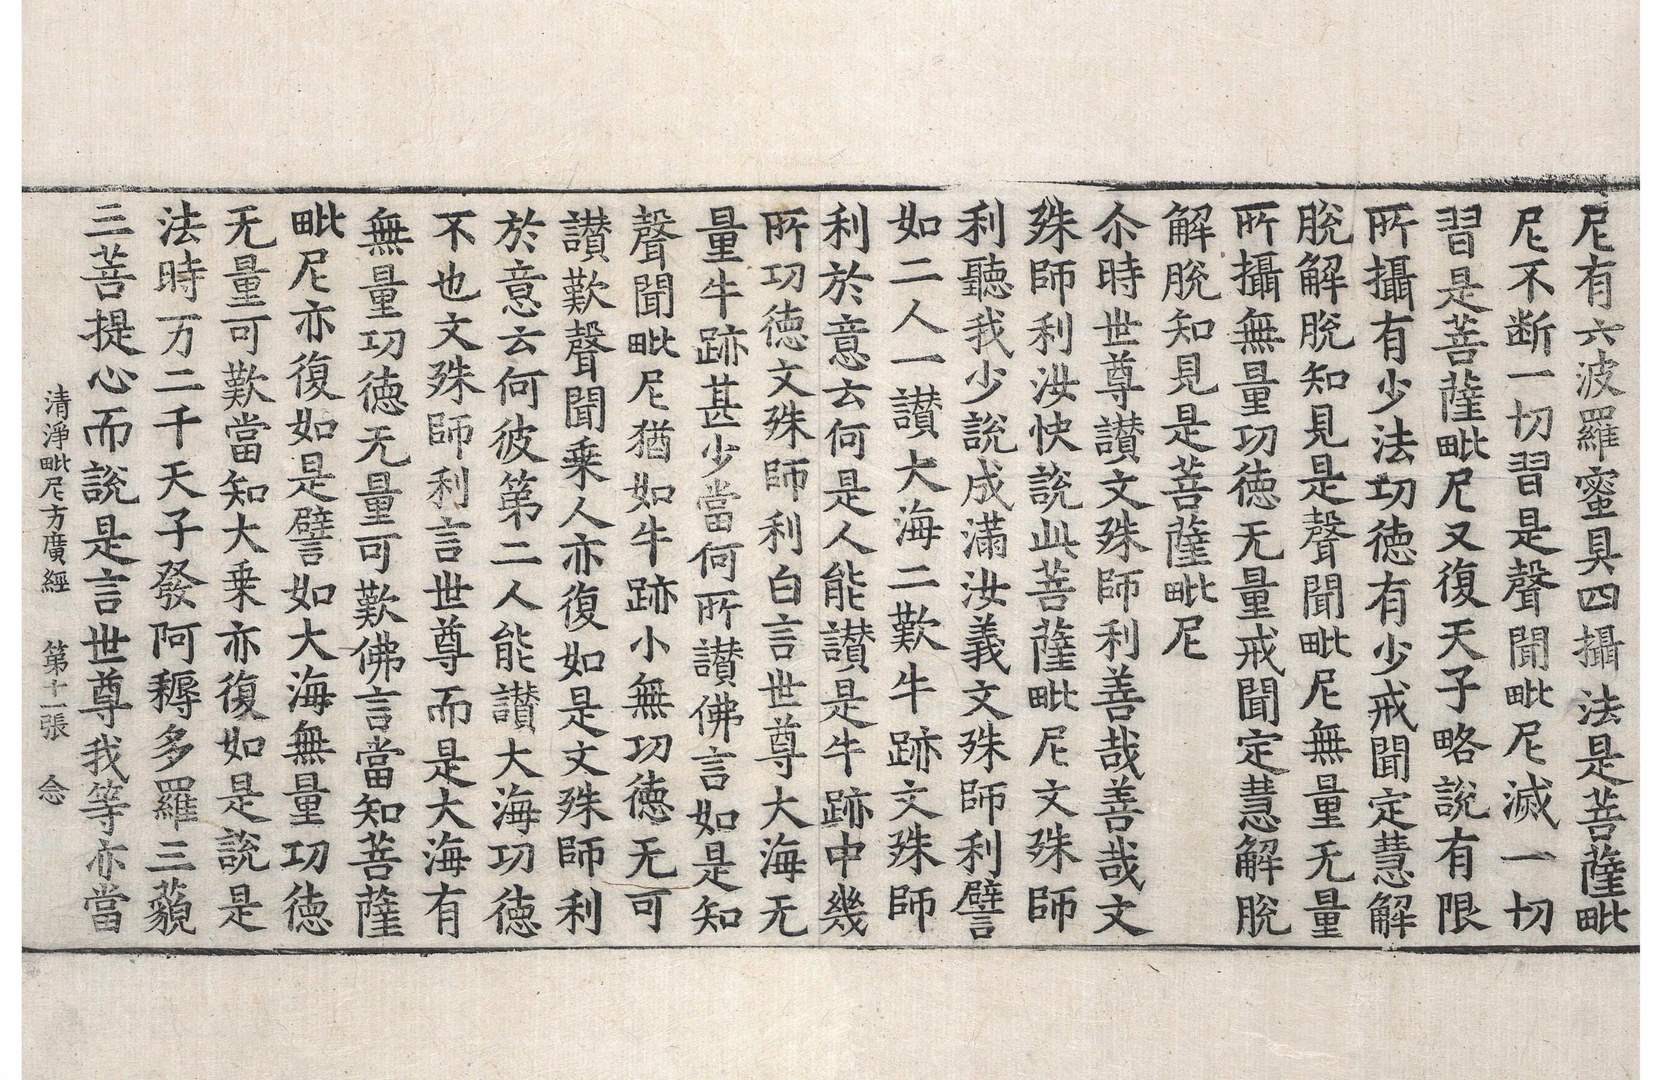 尼有六波羅蜜具四攝法是菩薩毗
尼不断一切習是聲聞毗尼滅一切
習是菩薩毗尼又復天子略說有限
所攝有少法功德有少戒聞定慧解
脫解脫知見是聲聞毗尼無量无量
所攝無量功德无量戒聞定慧解脫
解脫知見是菩薩毗尼
尒時世尊讃文殊師利善哉善哉文
殊師利汝快說此菩薩毗尼文殊師
利聽我少說成滿汝義文殊師利譬
如二人一讃大海二歎牛跡文殊師
利於意云何是人能讃是牛跡中幾
所功德文殊師利白言世尊大海无
量牛跡甚少當何所讃佛言如是知
聲聞毗尼猶如牛跡小無功德无可
讃歎聲聞乗人亦復如是文殊師利
於意云何彼第二人能讃大海功德
不也文殊師利言世尊而是大海有
無量功德无量可歎佛言當知菩薩
毗尼亦復如是譬如大海無量功德
无量可歎當知大乗亦復如是說是
法時万二千天子發阿耨多羅三藐
三菩提心而說是言世尊我等亦當
清淨毗尼方廣經　第十一張　念